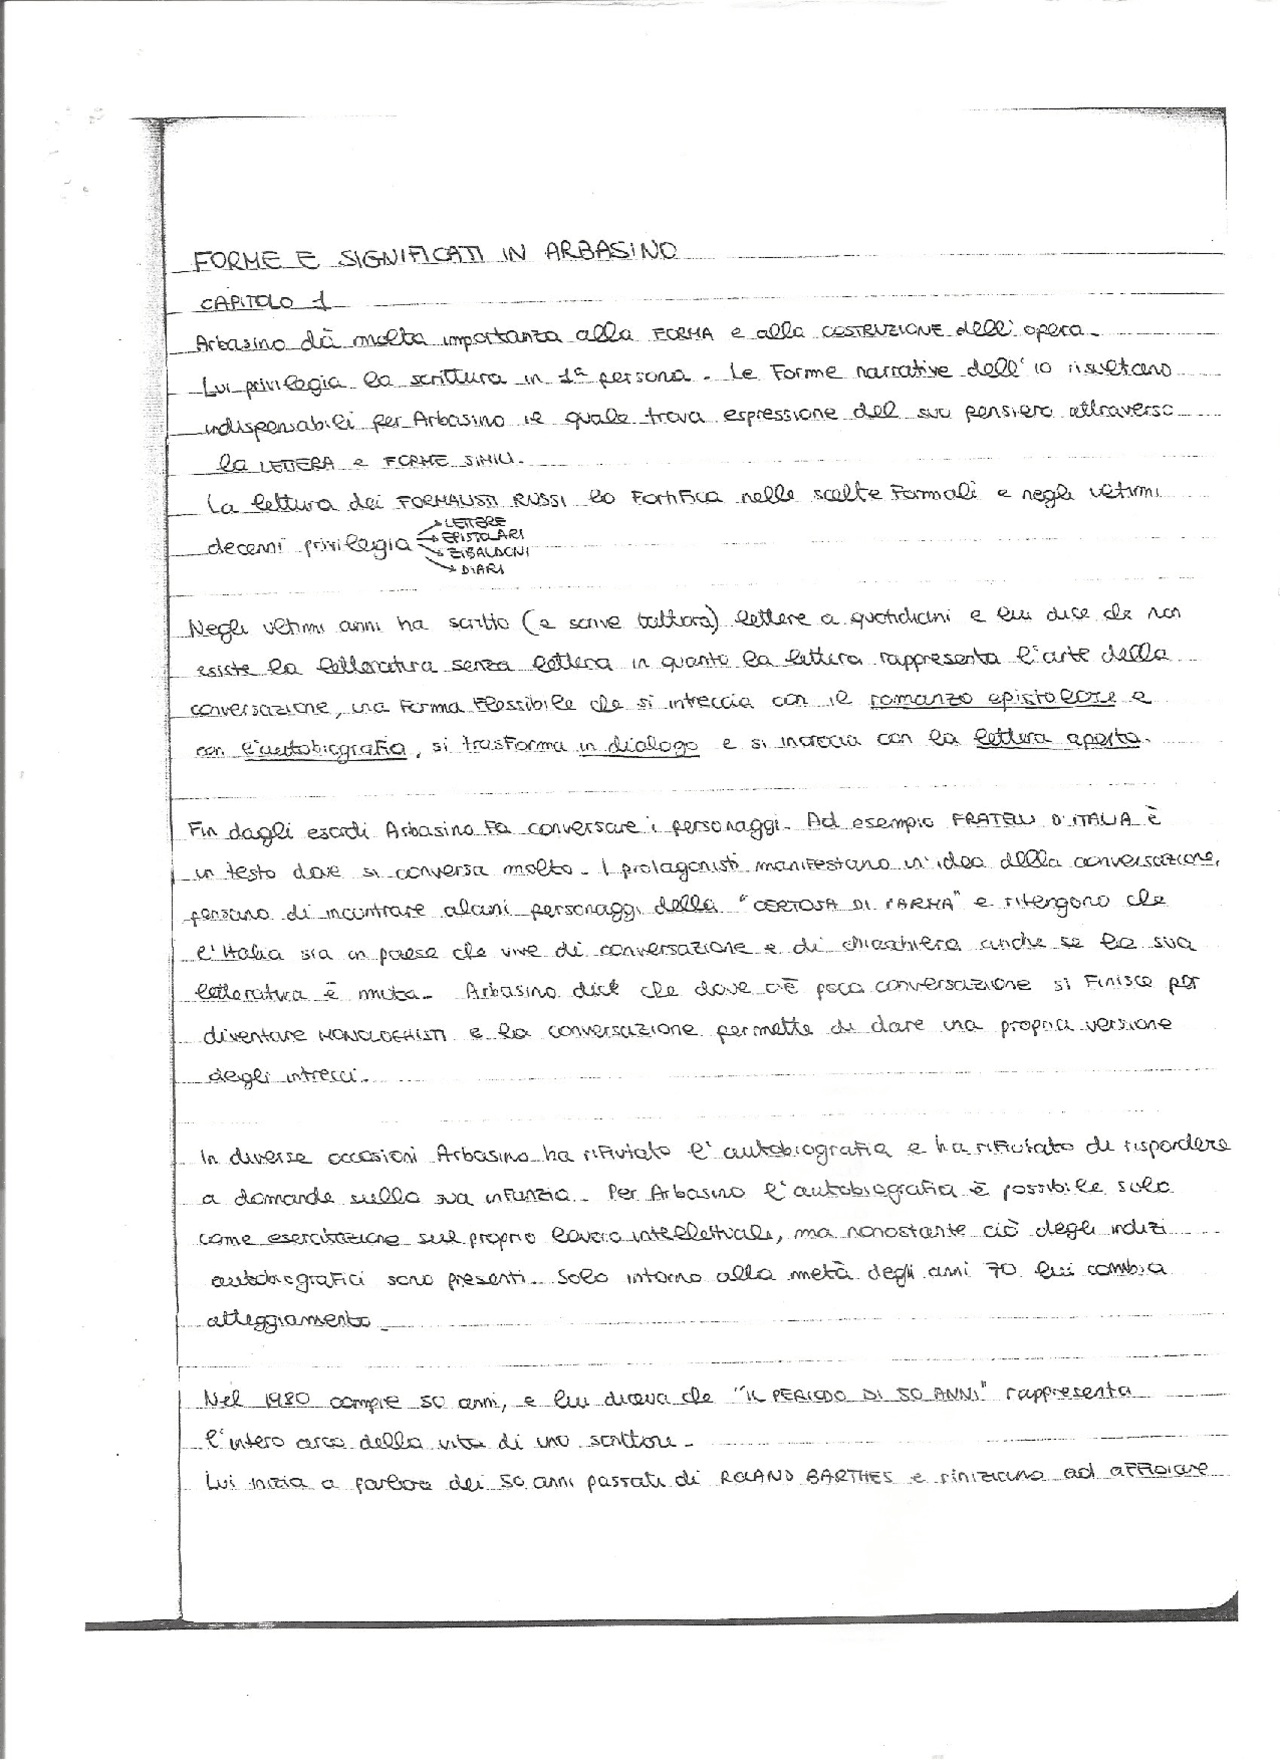 FORME E SIGNIFICATI IN ARBASINO
CAPITOLO 1
Arbasino dà molta importanza alla FORMA e alla COSTRUZIONE dell'opera.
Lui privilegia la scrittura in 1ª persona. Le Forme narrative dell'io risultano
indispensabili per Arbasino il quale trova espressione del suo pensiero attraverso
la LETTERA e FORME SIMILI.
La lettura dei FORMALISTI RUSSI lo Fortifica nelle scelte Formali e negli ultimi
decenni privilegia
LETTERE
EPISTOLARI
ZIBALDONI
DIARI
Negli ultimi anni ha scritto (e scrive tuttora) lettere a quotidiani e lui dice che non
esiste la letteratura senza lettera in quanto la lettera rappresenta l'arte della
conversazione, una Forma Flessibile che si intreccia con il romanzo epistolare e
con l'autobiografia, si trasforma in dialogo e si incrocia con la lettera aperta.
Fin dagli esordi Arbasino Fa conversare i personaggi. Ad esempio FRATELLI D'ITALIA È
un testo dove si conversa molto. I protagonisti manifestano un'idea della conversazione,
pensano di incontrare alcuni personaggi della "CERTOSA DI PARMA" e ritengono che
l'Italia sia un paese che vive di conversazione e di chiacchiera anche se la sua
letteratura è muta. Arbasino dice che dove c'È poca conversazione si Finisce per
diventare MONOLOGHISTI e la conversazione permette di dare una propria versione
degli intrecci.
In diverse occasioni Arbasino ha rifiutato l'autobiografia e ha rifiutato di rispondere
a domande sulla sua infanzia. Per Arbasino l'autobiografia è possibile solo
come esercitazione sul proprio lavoro intellettuale, ma nonostante ciò degli indizi
autobiografici sono presenti. Solo intorno alla metà degli anni 70 lui cambia
atteggiamento.
Nel 1980 compie 50 anni, e lui diceva che "IL PERIODO DI 50 ANNI" rappresenta
l'intero arco della vita di uno scrittore.
Lui inizia a parlare dei 50 anni passati di ROLAND BARTHES e iniziano ad affiorare